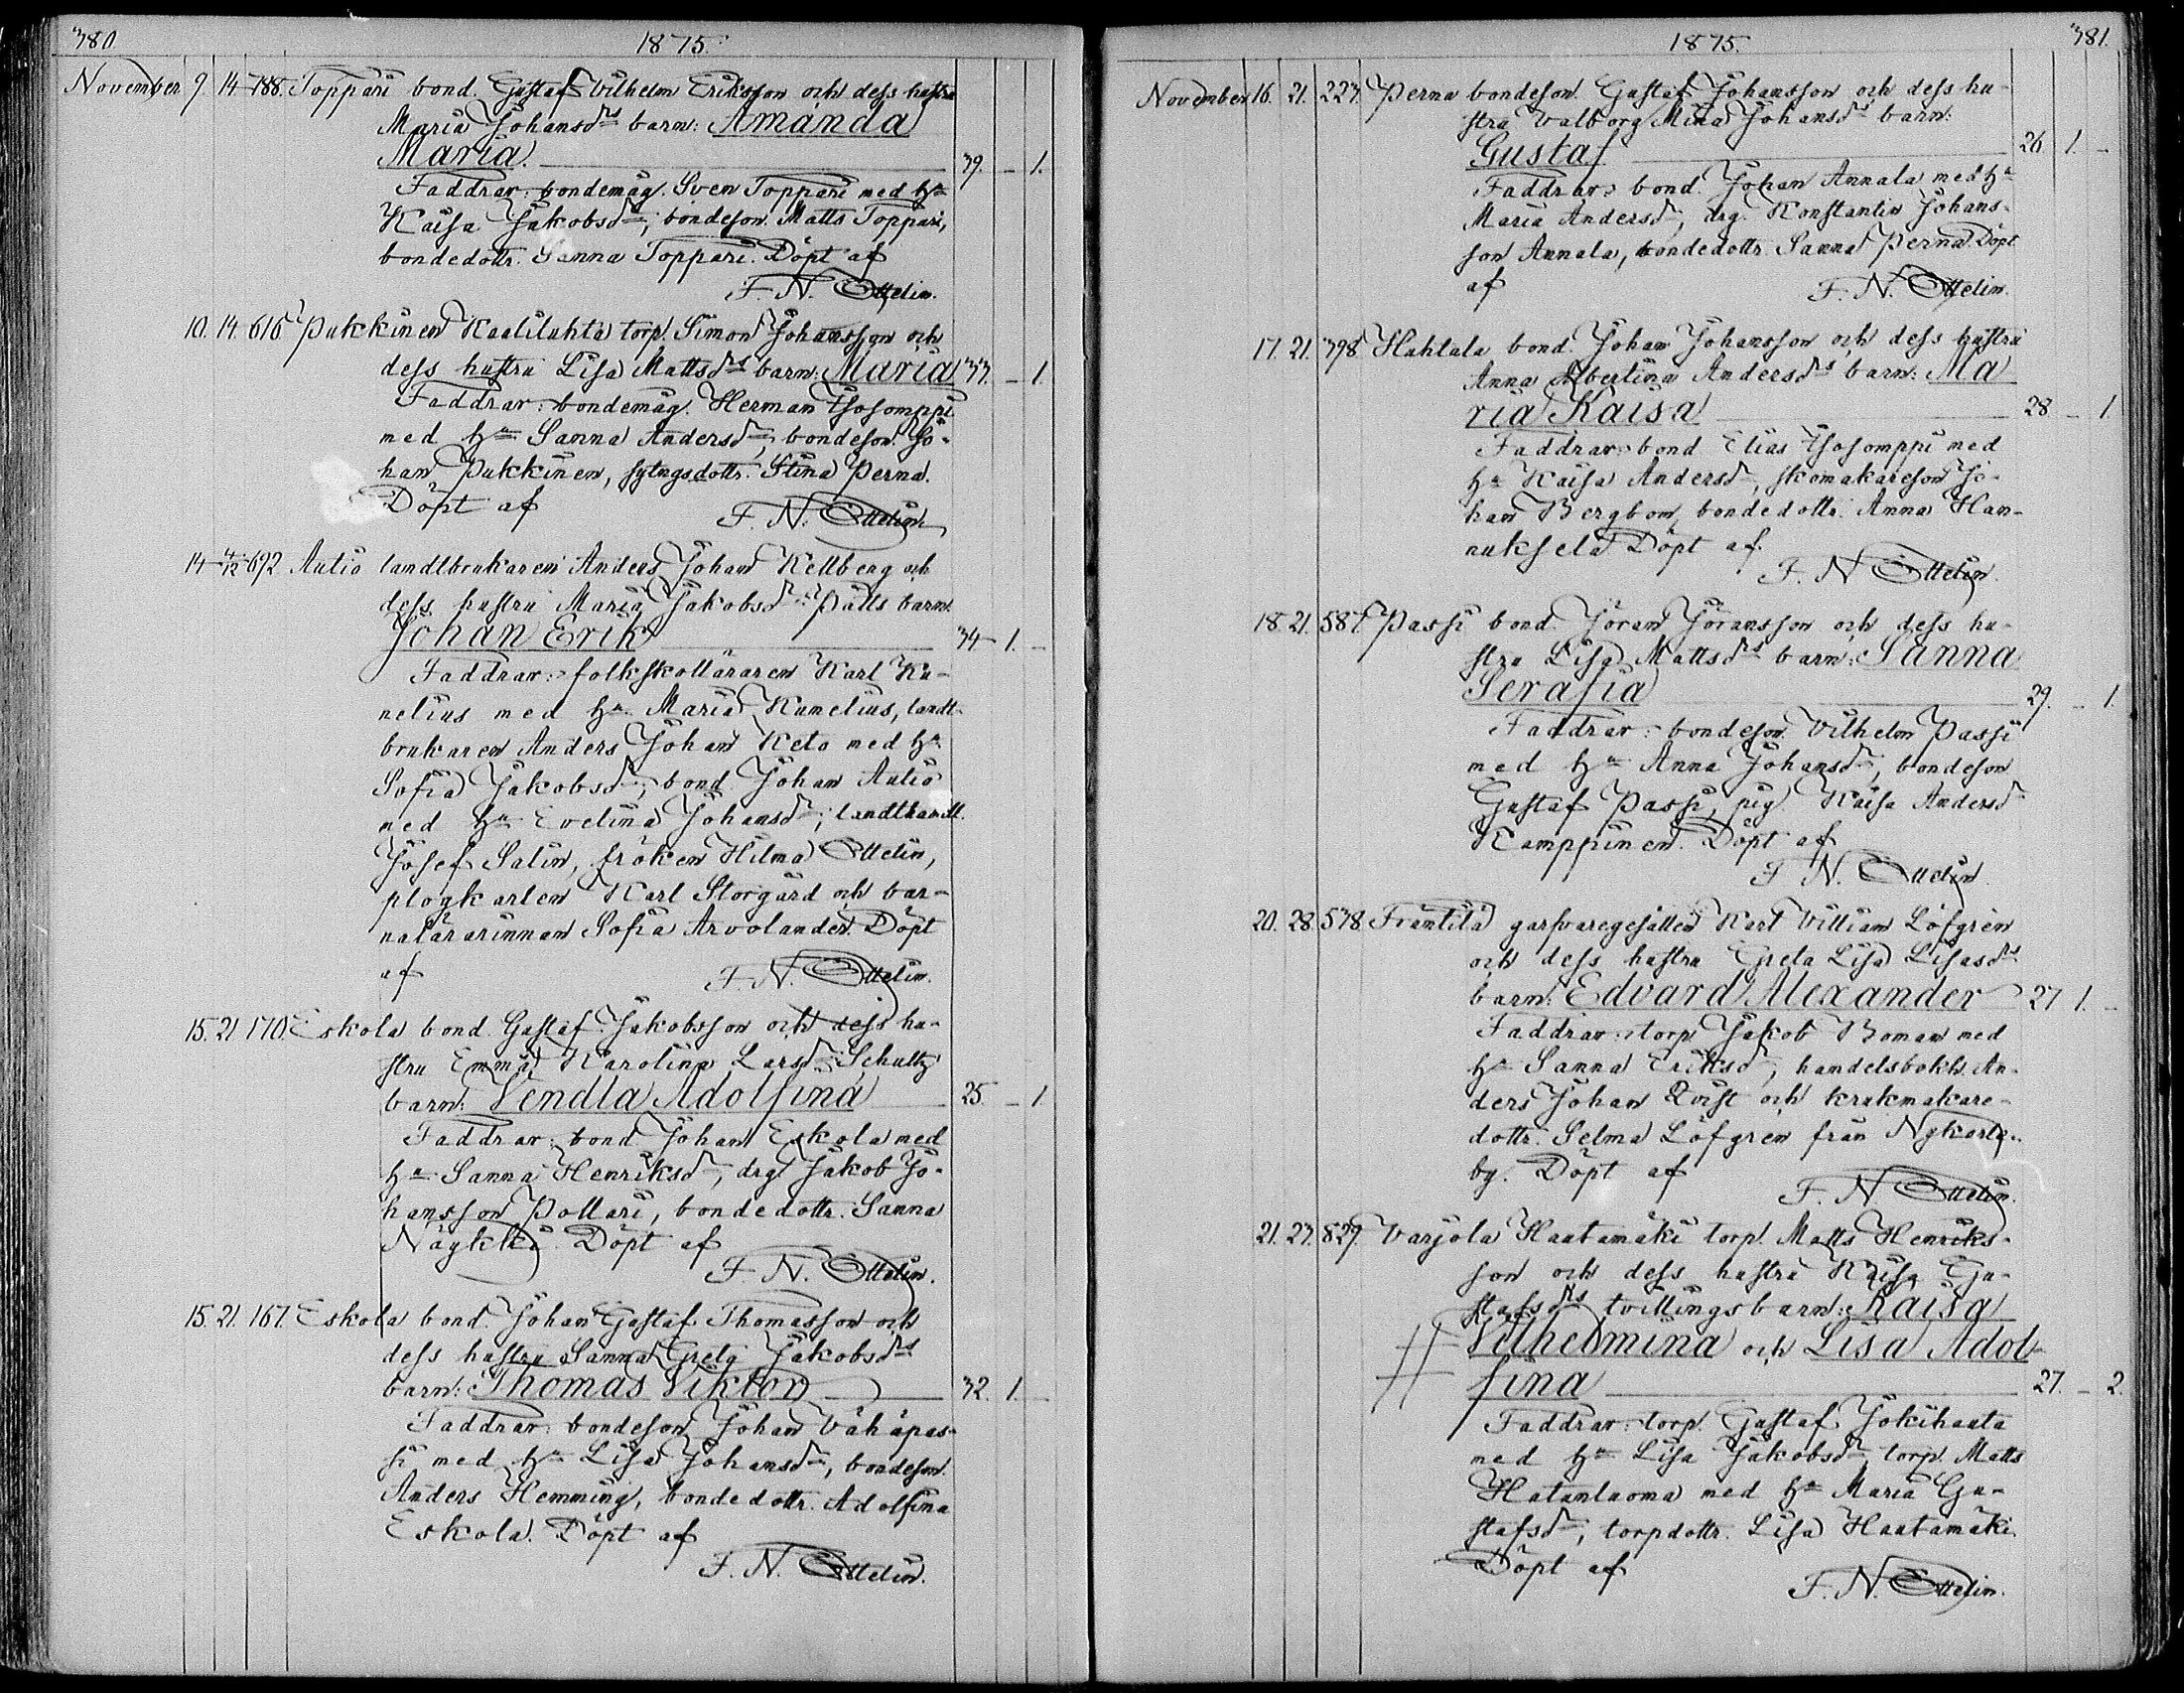 380. 1875.
November 9. 14. 188. Toppari bond. Gustaf Vilhelm Eriksson och dess hustru
Maria Johansdrs barn: Amanda
Maria. 39. – 1.
Faddrar: bondemåg. Sven Toppari med ha
Kaisa Jakobsdr, bondeson. Matts Toppari,
bondedottr. Sanna Toppari. Döpt af
F. N. Ottelin.
10. 14. 616. Pukkinen Kaaliluhta torp. Simon Johansson och
dess hustru Lisa Mattsdrs barn: Maria 33. – 1.
Faddrar: bondemåg. Herman Isosomppi
med ha Sanna Andersdr, bondeson. Jo-
han Pukkinen, sytngsdottr. Stina Perna.
Döpt af F. N. Ottelin.
14. 4/12 692 Autio landtbrukaren Anders Johan Kellberg och
dess hustru Maria Jakobsdr Pätts barn:
Johan Erik 34 – 1. –
Faddrar: folkskolläraren Karl Ku-
nelius med ha Maria Kumelius, landt-
brukaren Anders Johan Keto med ha
Sofia Jakobsdr, bond. Johan Autio
med ha Evelina Johansdr, landthandl.
Josef Salin, fröken Hilma Ottelin,
plogkarlen Karl Storgård och bar-
nalärarinnan Sofia Arvolander. Döpt
af F. N. Ottelin.
15. 21. 170. Eskola bond. Gustaf Jakobsson och dess hu-
stru Emma Karolina Larsdr Schultz
barn: Vendla Adolfina 25. – 1
Faddrar: bond. Johan Eskola med
ha Sanna Henriksdr, drg. Jakob Jo-
hansson Pollari, bondedottr. Sanna
Näykki. Döpt af
F. N. Ottelin.
15. 21. 167. Eskola bond. Johan Gustaf Thomasson och
dess hustru Sanna Greta Jakobsdrs
barn: Thomas Viktor 32. 1. –
Faddrar: bondeson Johan Vähäpas-
si med ha Lisa Johansdr, bondeson.
Anders Hemming, bondedottr. Adolfina
Eskola. Döpt af
F. N. Ottelin.
1875. 381.
November 16. 21. 223. Perna bondeson. Gustaf Johansson och dess hu-
stru Valborg Mina Johansdrs barn:
Gustaf 26. 1. –
Faddrar: bond. Johan Annala med ha
Maria Andersdr, drg. Konstantin Johans-
son Annala, bondedottr. Sanna Perna. Döpt
af F. N. Ottelin.
17. 21. 398. Hahtala bond. Johan Johansson och dess hustru
Anna Albertina Andersdrs barn: Ma
ria Kaisa 28 – 1.
Faddrar: bond Elias Isosomppi med
ha Kaisa Andersdr, skomakareson Jo-
han Bergbom, bondedottr. Anna Han-
nuksela. Döpt af.
F. N Ottelin.
18. 21. 587. Passi bond. Jöran Göransson och dess hu-
stru Lisa Mattsdrs barn: Sanna
Serafia 29. – 1.
Faddrar: bondeson. Vilhelm Passi
med ha Anna Johansdr, bondeson
Gustaf Passi, pig. Kaisa Andersdr
Kamppinen. Döpt af
F. N. Ottelin.
20. 28. 578. Frantila garfvaregesällen Karl Villiam Löfgren
och dess hustru Greta Lisa Lisasdrs
barn: Edvard Alexander 27 1. –
Faddrar: torp. Jakob Boman med
ha Sanna Eriksdr, handelsbokh. An-
ders Johan Qvist och krukmakare-
dottr. Selma Löfgren från Nykarle-
by. Döpt af
F. N Ottelin.
21. 23. 829. Varjola Haatamäki torp. Matts Henriks-
son och dess hustru Kaisa Gu-
stafsdrs tvillingsbarn: Kaisa
Vilhelmina och Lisa Adol-
fina 27. – 2.
Faddrar: torp. Gustaf Jokihaata
med ha Lisa Jakobsdr, torp. Matts
Hatanluoma med ha Maria Gu-
stafsdr, torpdottr. Lisa Haatamäki.
Döpt af
F. N. Ottelin.